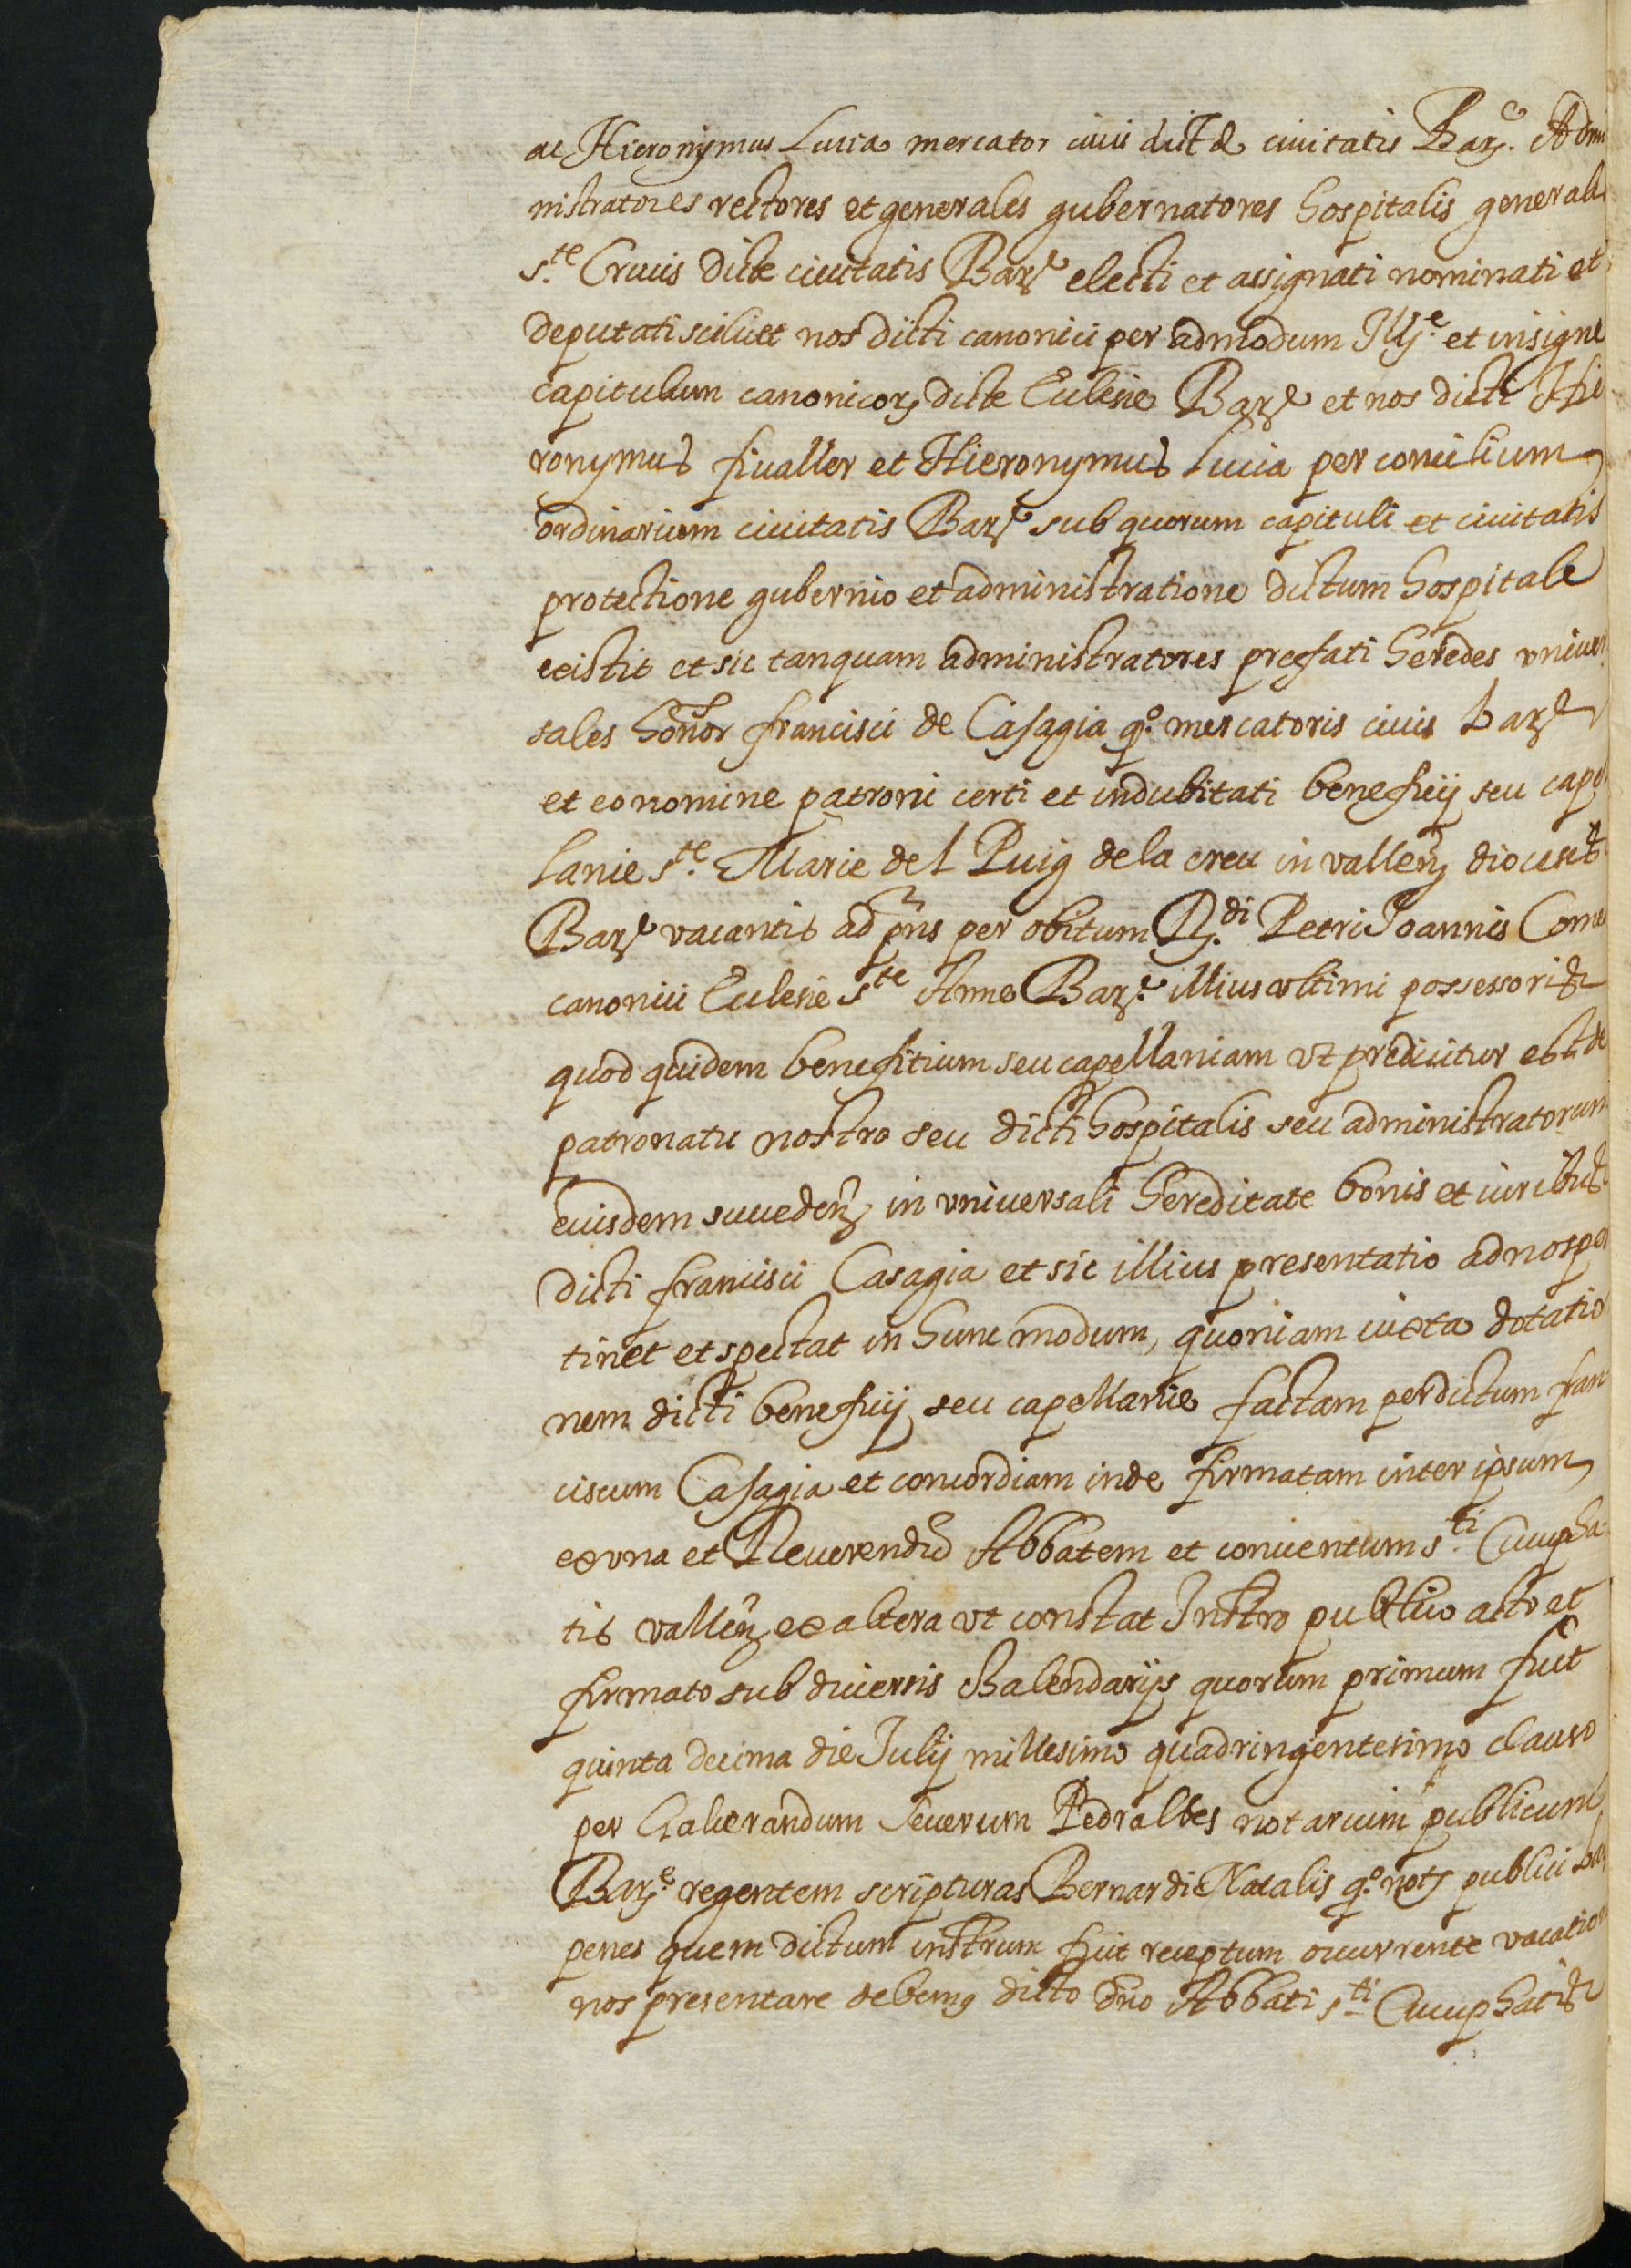 ac Hieronymus Lucia mercator ciuis dicte ciuitatis Barͤ. Admi
nistratores rectores et generales gubernatores hospitalis generalis
s.te Crucis dicte ciuitatis Barͤ electi et assignati nominati et
deputati scilicet nos dicti canonici per admodum Illͤ. et insigne
capitulum canonicorꝝ dicte Ecclesie Barͤ et nos dicti Hie
ronymus fiualler et Hieronymus Lucia per concilium
ordinarium ciuitatis Barͤ sub quorum capituli et ciuitatis
protectione gubernio et administratione dictum hospitale
existit et sic tanquam administratores prefati heredes vniuer
sales honor francisci de Casagia q.º mercatoris ciuis Barͤ
et eo nomine patroni certi et indubitati beneficij seu cape
lanie s.te Marie del Puig dela creu in vallen̄ diocesis
Barͤ vacantis ad pñs per obitum R.di Petri Joannis Come
canonici Ecclesie s.te Anne Barͤ. illius vltimi possessoris
quod quidem benefitium seu capellaniam vt predicitur est de
patronatu nostro seu dicti hospitalis seu administratorum
eiusdem succeden̄ in vniuersali hereditate bonis et iuribus
dicti francisci Casagia et sic illius presentatio ad nos per
tinet et spectat in hunc modum, quoniam iuxta dotatio
nem dicti beneficij seu capellanie factam per dictum fran
ciscum Casagia et concordiam inde firmatam inter ipsum
ex vna et Reuerendũ Abbatem et conuentum s.ti Cucupha
tis vallen̄ ex altera vt constat Instro publico acto et
firmato sub diuersis Kalendarijs quorum primum fuit
quinta decima die Julij millesimo quadringentesimo clauso
per Galcerandum Seuerum Pedralbes notarium publicum
Barͤ. regentem scripturas Bernardi Natalis q.º notͥ publici Bar
penes quem dictum instrum fuit receptum occurrente vacation
nos presentare debemꝯ dicto dño Abbati s.ti Cucuphatis